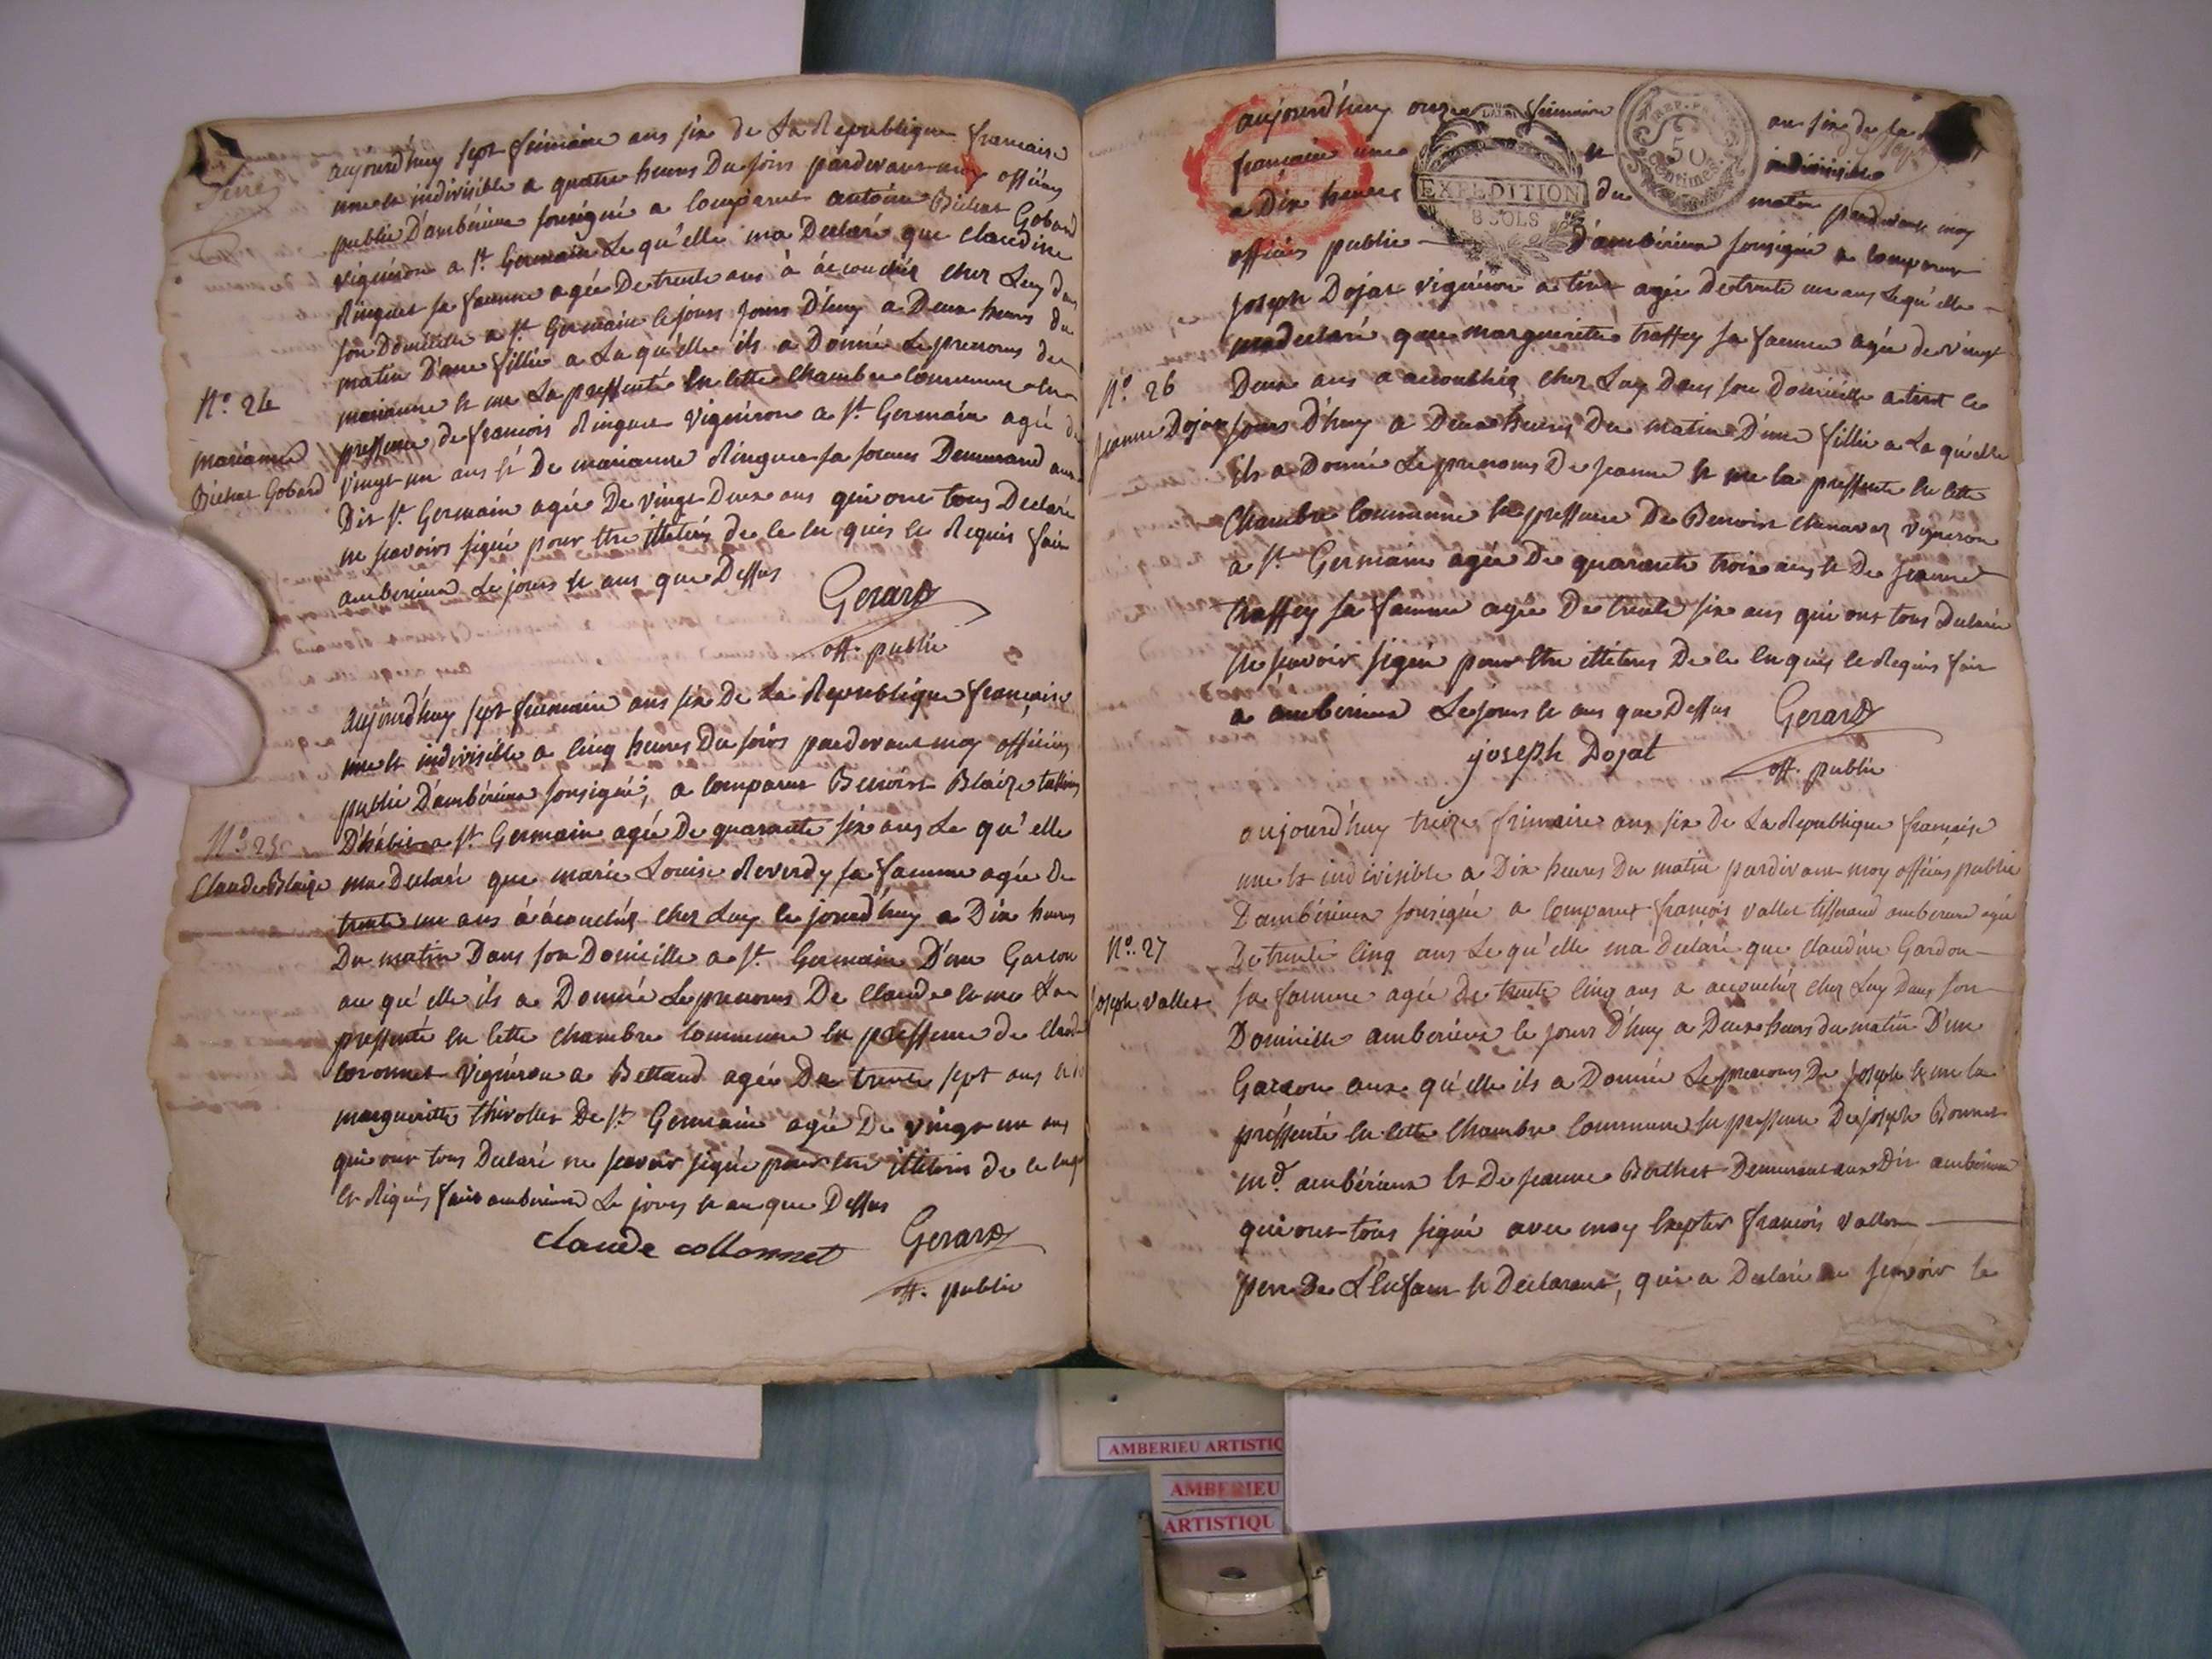 aujourd'huy sept frimaire ans six de La Republique francaise
une et indivisible a quatre heures Du soirs pardevant moy officies
public D'ambérieux sousigné a comparut antoine Bichat Gobard
vignérons a St Germain Le qu'elle ma Declaré que claudine
Ringuet sa famme agée De trente ans à àccouchéz chez Luy dans
son Domicille a St Germain le jours jours D'huy a Deux heures du
matin D'une fillie a La qu'elle ils a Donné Le prenoms de
marianne et me La pressenté En cette Chambre Commune En
N° 24
pressence de francois Ringuet vignérons a St Germain agée de
marianne
Bichat Gobard
vingt un ans Et De marianne Ringuet sa soeurs Demeurand aux
Dit St Germain agée De vingt Deux ans qui ont tous Declaré
ne scavoirs signé pour Etre illiterés de ce En quis Et Requis fait
amberieux Le jours Et ans que Dessus
Gerard
off. public
aujourd'huy sept frimaire ans six De La Republique francaise
une Et indivisible a Cinq heures Du soirs pardevant moy officies
public D'ambérieux sousigné, a comparut Benoist Blaize tallieurs
N° 25
D'habis a St Germain agée De quarante six ans Le qu'elle
Claude Blaize
ma Declaré que marie Louise Reverdy sa famme agée De
trente un ans à àcouchéz chez Luy le jourd'huy a Dix heures
Du matin Dans son Domicille a St Germain D'un Garcon
au qu'elle ils a Donné Le prenoms De Claude et me L'a
pressenté En cette chambre Commune En pressence de Claude
Coronnet vignérons a Bettand agée De trente sept ans et de
margueritte thivollet De St Germain agée De vingt un ans
qui ont tous Declaré ne scavoir signé pour Etre illiterés de ce Enquis
Et Requis fait amberieux Le jours Et an que Dessus
claude collonnet
Gerard
off. public
aujourd'huy onze frimaire an six de la
REP. FRA.
50
Centimes
francaise une et indivisible
EXPEDITION
8 SOLS
a Dix heures du matin pardevant moy
officies public D'ambérieux sousigné a comparut
Joseph Dojat vignérons a tiret agée de trente un ans Le qu'elle
ma declaré que margueritte traffey sa famme agée de vingt
N° 26
Deux ans a accouchéz chez Luy Dans son Domicille a tiret ce
Jeanne Dojat
jours D'huy a Deux heures Du matin D'une fillie a La qu'elle
ils a Donné Le prenoms De Jeanne Et me la pressente En cette
Chambre Commune En pressence De Benoist chenavaz vigneron
a St Germain agée De quarante trois ans Et De Jeanne
traffey sa famme agée De trente six ans qui ont tous Declaré
ne scavoir signé pour Etre illiterés De ce Enquis Et Requis fait
a amberieux Le jours Et ans que Dessus
Gerard
joseph Dojat
off. public
aujourd'huy treize frimaire ans six de La Republique francaise
une Et indivisible a Dix heures Du matin pardevant moy officies public
D'ambérieux sousigné a comparut françois vallet tisserand amberieux agée
N° 27
De trente Cinq ans Le qu'elle ma Declaré que claudine Gardon
Joseph vallet
sa famme agée De trente Cinq ans a accouchéz chez Luy Dans son
Domicille amberieux le jours D'huy a Deux heures du matin D'un
Garcon aux qu'elle ils a Donné Le prenoms De Joseph Et me la
préssenté En cette Chambre Commune En pressence De Joseph Bonnet
Md ambérieux Et De Jeanne Berthet Demeurant aux Dit amberieux
qui ont tous signé avec moy Exepter francois vallet
pere De L'Enfant Et Declarant, qui a Declaré ne scavoir Le
AMBERIEU ARTISTIQ
AMBERIEU
ARTISTIQU